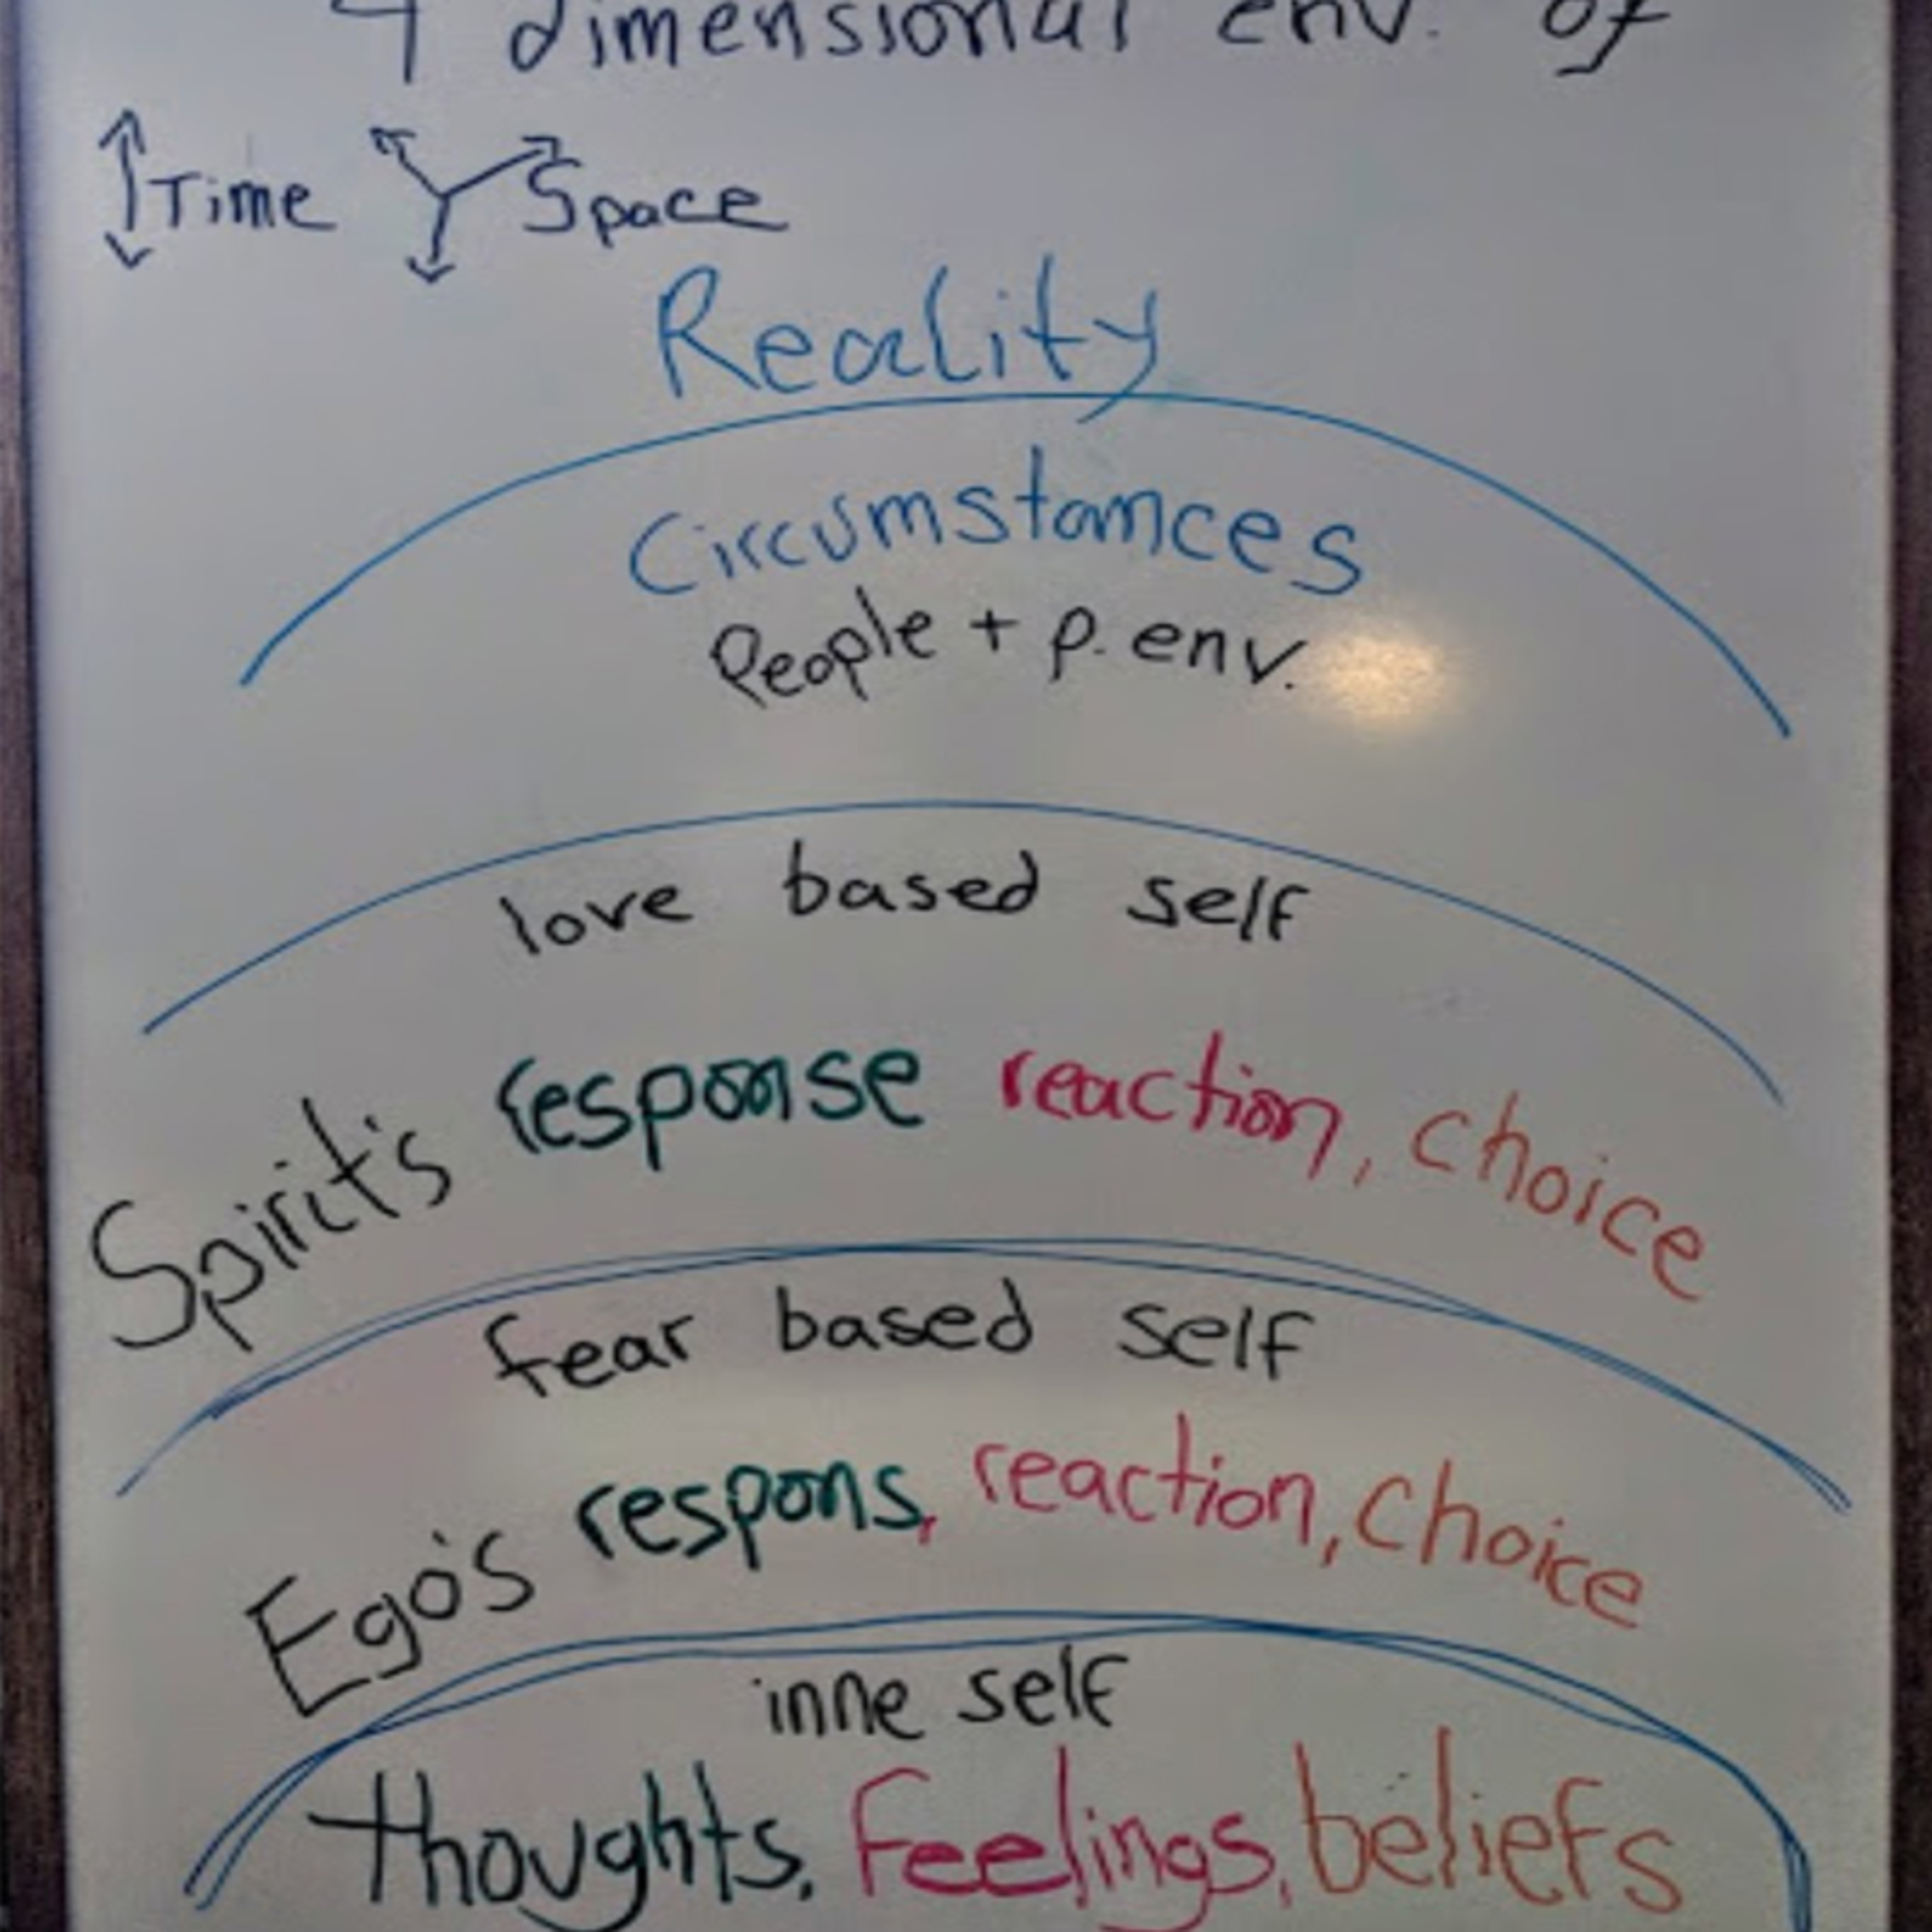 4 dimensional env. of
Time Space
Reality
Circumstances
People + p. env.
love based self
Spirit's response reaction, choice
fear based self
Ego's respons, reaction, choice
inne self
thoughts, Feelings, beliefs